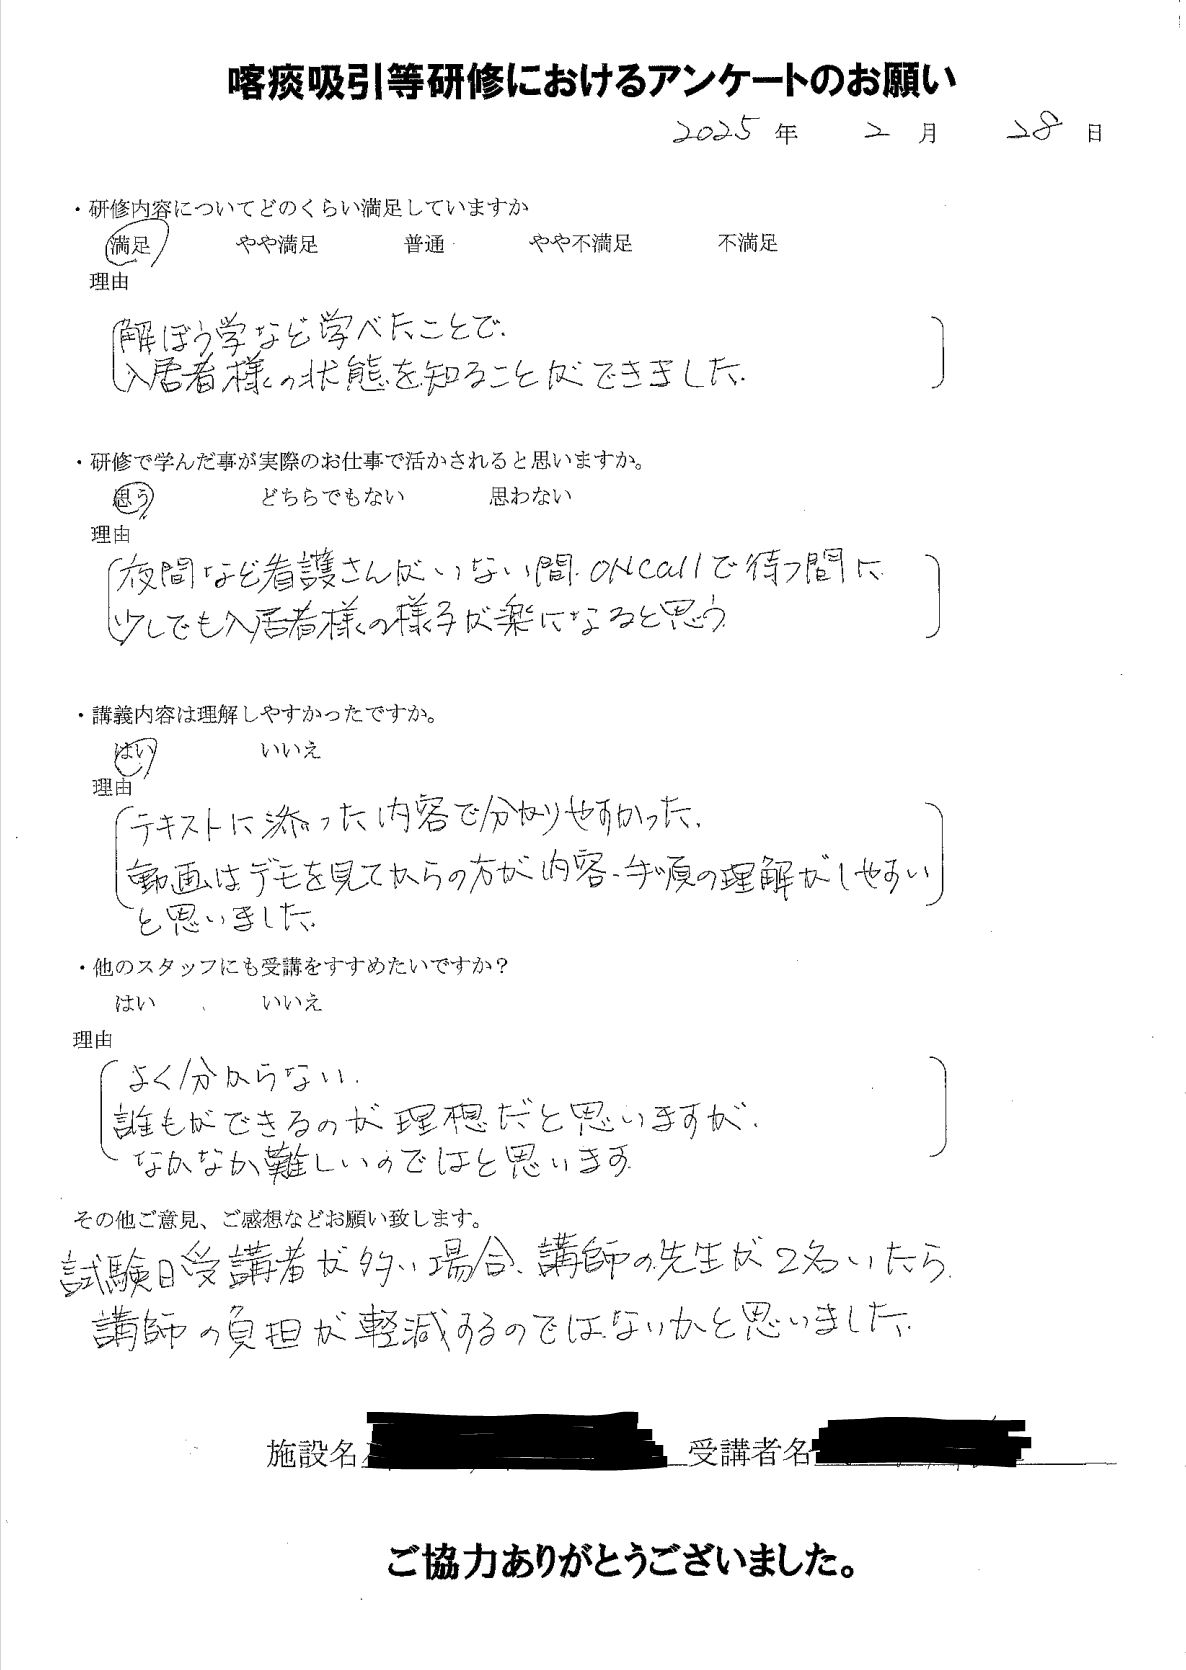 喀痰吸引等研修におけるアンケートのお願い
2025 年 2 月 28 日
・研修内容についてどのくらい満足していますか
満足 やや満足 普通 やや不満足 不満足
理由
解ぼう学など学べたことで、
入居者様の状態を知ることができました。
・研修で学んだ事が実際のお仕事で活かされると思いますか。
思う どちらでもない 思わない
理由
夜間など看護さんがいない間、ONcallで待つ間に
少しでも入居者様の様子が楽になると思う
・講義内容は理解しやすかったですか。
はい いいえ
理由
テキストに添った内容で分かりやすかった。
動画はデモを見てからの方が内容・手順の理解がしやすい
と思いました。
・他のスタッフにも受講をすすめたいですか？
はい 、 いいえ
理由
よく分からない。
誰もができるのが理想だと思いますが、
なかなか難しいのではと思います
その他ご意見、ご感想などお願い致します。
試験日受講者が多い場合、講師の先生が2名いたら
講師の負担が軽減するのではないかと思いました。
施設名 受講者名
ご協力ありがとうございました。